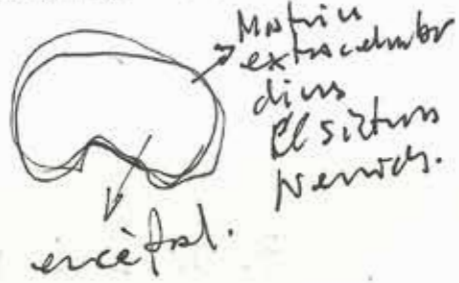 Matriu
extracelular
dins
el sistema
nerviós.
encèfal.